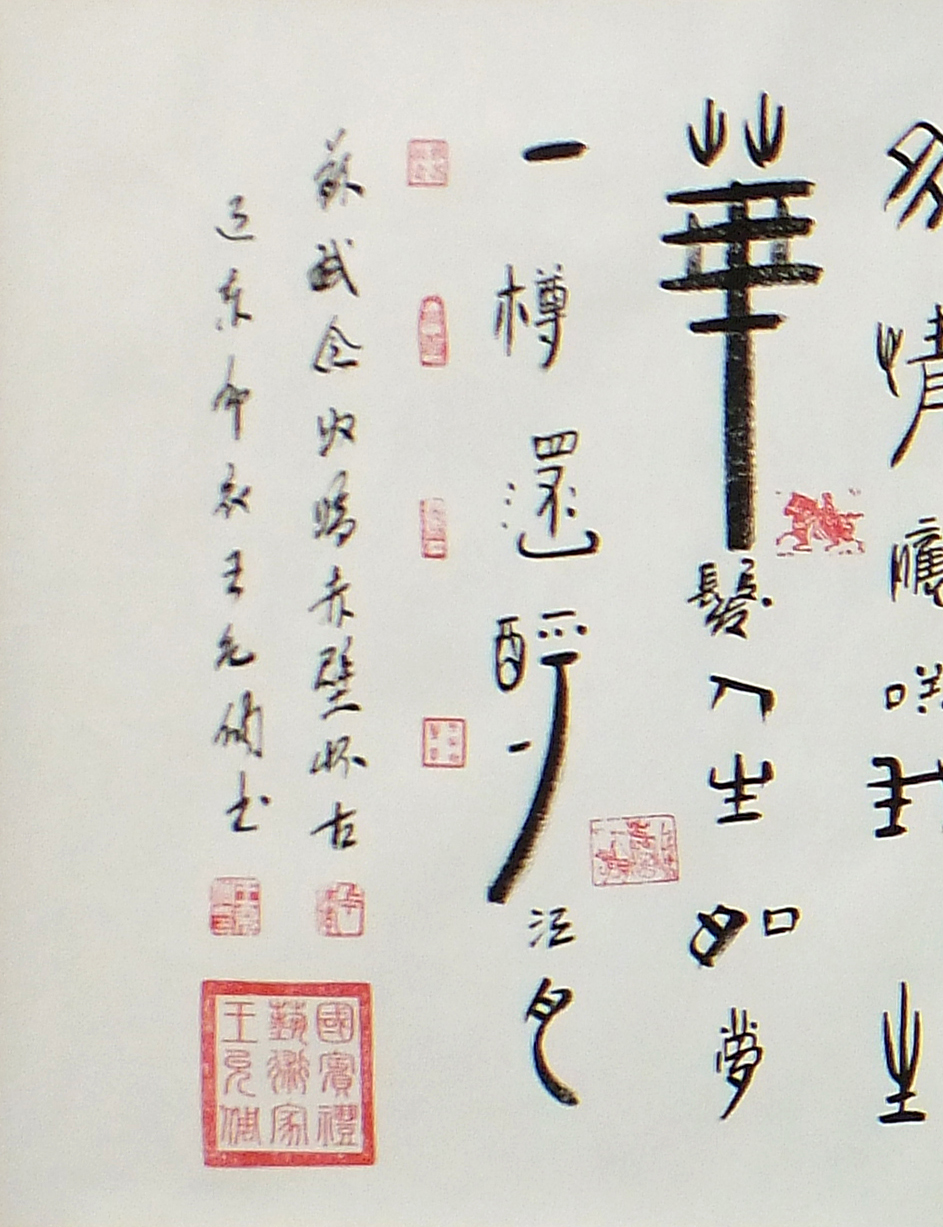 多情應咲我生
華髮人生如夢
一樽還酹江月
蘇軾念奴嬌赤壁怀古
辽东布衣王书
國賓禮
藝術家
王